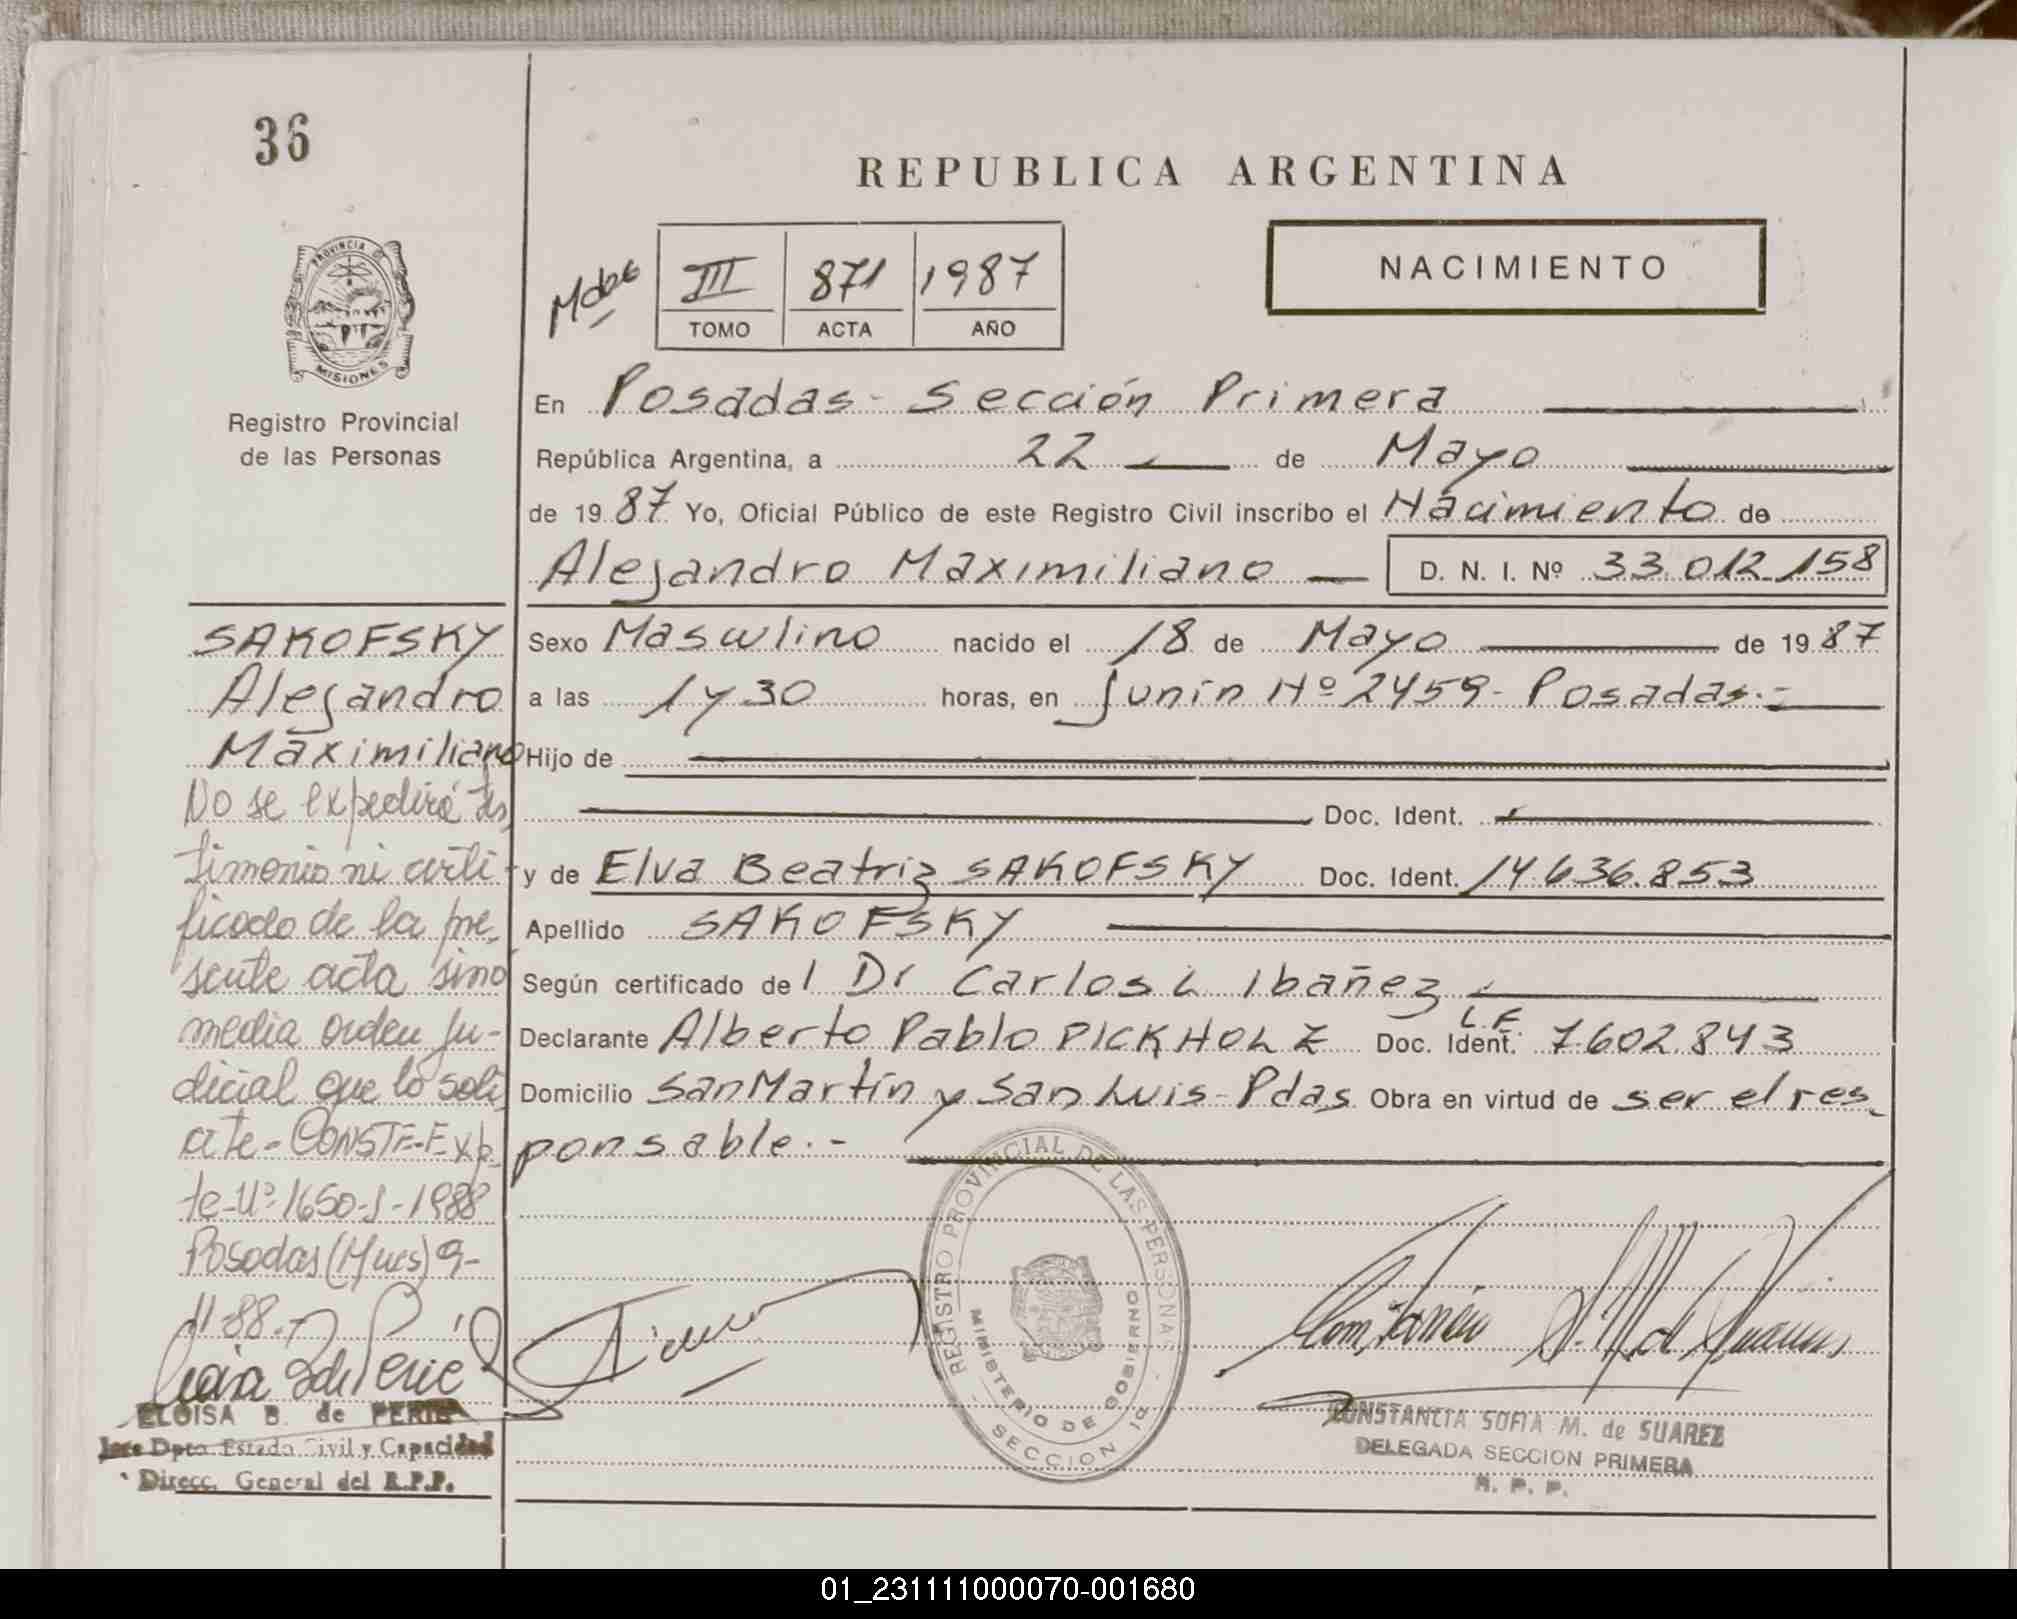 36
REPUBLICA ARGENTINA
NACIMIENTO
III 871 1987
TOMO ACTA AÑO
PROVINCIA DE
MISIONES
Registro Provincial
de las Personas
En Posadas - Sección Primera
República Argentina, a 22 de Mayo
de 1987 Yo, Oficial Público de este Registro Civil inscribo el Nacimiento de
Alejandro Maximiliano D. N. I. Nº 33.012.158
Sexo Masculino nacido el 18 de Mayo de 1987
a las 1 y 30 horas, en Junín Nº 2459 - Posadas.-
Hijo de
Doc. Ident.
y de Elva Beatriz SAKOFSKY Doc. Ident. 14.636.853
Apellido SAKOFSKY
Según certificado del Dr Carlos L Ibañez
Declarante Alberto Pablo PICKHOLZ Doc. Ident. L.E. 7.602.843
Domicilio San Martín y San Luis - Pdas Obra en virtud de ser el res
ponsable.-
SAKOFSKY
Alejandro
Maximiliano
No se expedirá tes
timonio ni certi-
ficado de la pre-
sente acta sino
media orden ju-
dicial que lo soli
cite - CONSTE - Exp
te-Nº 1650-S-1988
Posadas (Mnes) 9-
11-88.-
ELOISA B. de PERIE
Jefe Dpto. Estado Civil y Capacidad
Direcc. General del R.P.P.
REGISTRO PROVINCIAL DE LAS PERSONAS
MINISTERIO DE GOBIERNO
SECCION 1a
CONSTANCIA SOFIA M. de SUAREZ
DELEGADA SECCION PRIMERA
R. P. P.
01_231111000070-001680